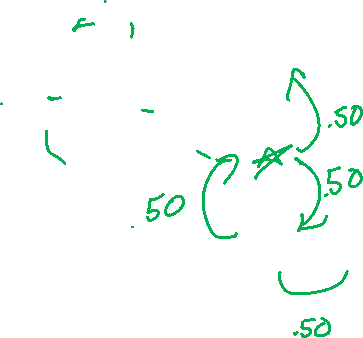 .50
.50
.50
.50